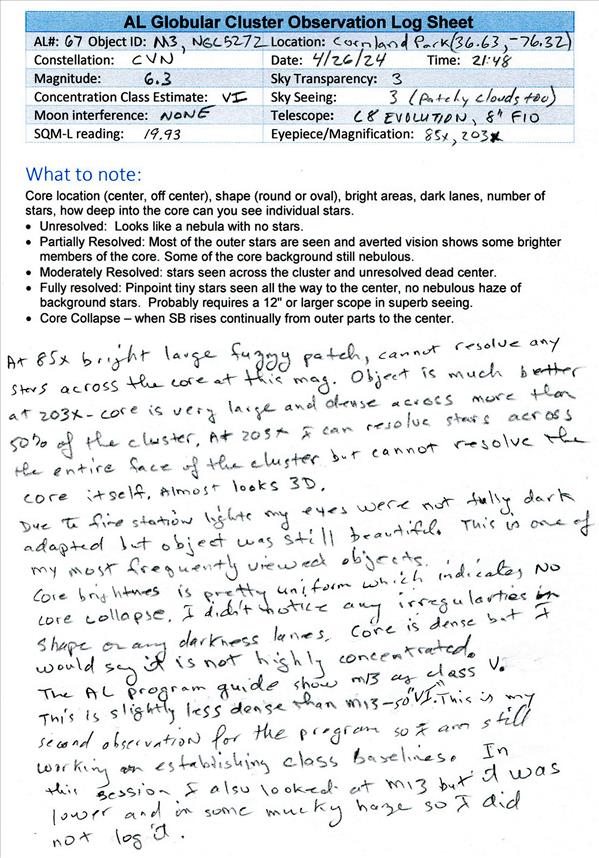 AL Globular Cluster Observation Log Sheet
AL#: 67 Object ID: M3, NGC5272 Location: Cornland Park (36.63, -76.32)
Constellation: CVN Date: 4/26/24 Time: 21:48
Magnitude: 6.3 Sky Transparency: 3
Concentration Class Estimate: VI Sky Seeing: 3 (Patchy clouds too)
Moon interference: NONE Telescope: C8 EVOLUTION, 8" F10
SQM-L reading: 19.93 Eyepiece/Magnification: 85x, 203x
What to note:
Core location (center, off center), shape (round or oval), bright areas, dark lanes, number of
stars, how deep into the core can you see individual stars.
• Unresolved: Looks like a nebula with no stars.
• Partially Resolved: Most of the outer stars are seen and averted vision shows some brighter
members of the core. Some of the core background still nebulous.
• Moderately Resolved: stars seen across the cluster and unresolved dead center.
• Fully resolved: Pinpoint tiny stars seen all the way to the center, no nebulous haze of
background stars. Probably requires a 12" or larger scope in superb seeing.
• Core Collapse – when SB rises continually from outer parts to the center.
At 85x bright large fuzzy patch, cannot resolve any
stars across the core at this mag. Object is much better
at 203x - core is very large and dense across more than
50% of the cluster. At 203x I can resolve stars across
the entire face of the cluster but cannot resolve the
core itself. Almost looks 3D.
Due to fire station lights my eyes were not fully dark
adapted but object was still beautiful. This is one of
my most frequently viewed objects.
Core brightness is pretty uniform which indicates no
core collapse. I didn't notice any irregularties in
shape or any darkness lanes. Core is dense but I
would say it is not highly concentrated.
The AL program guide show M13 as class V.
This is slightly less dense than M13 - so "VI". This is my
second observation for the program so I am still
working on establishing class baselines. In
this session I also looked at M13 but it was
lower and in some mucky haze so I did
not log it.